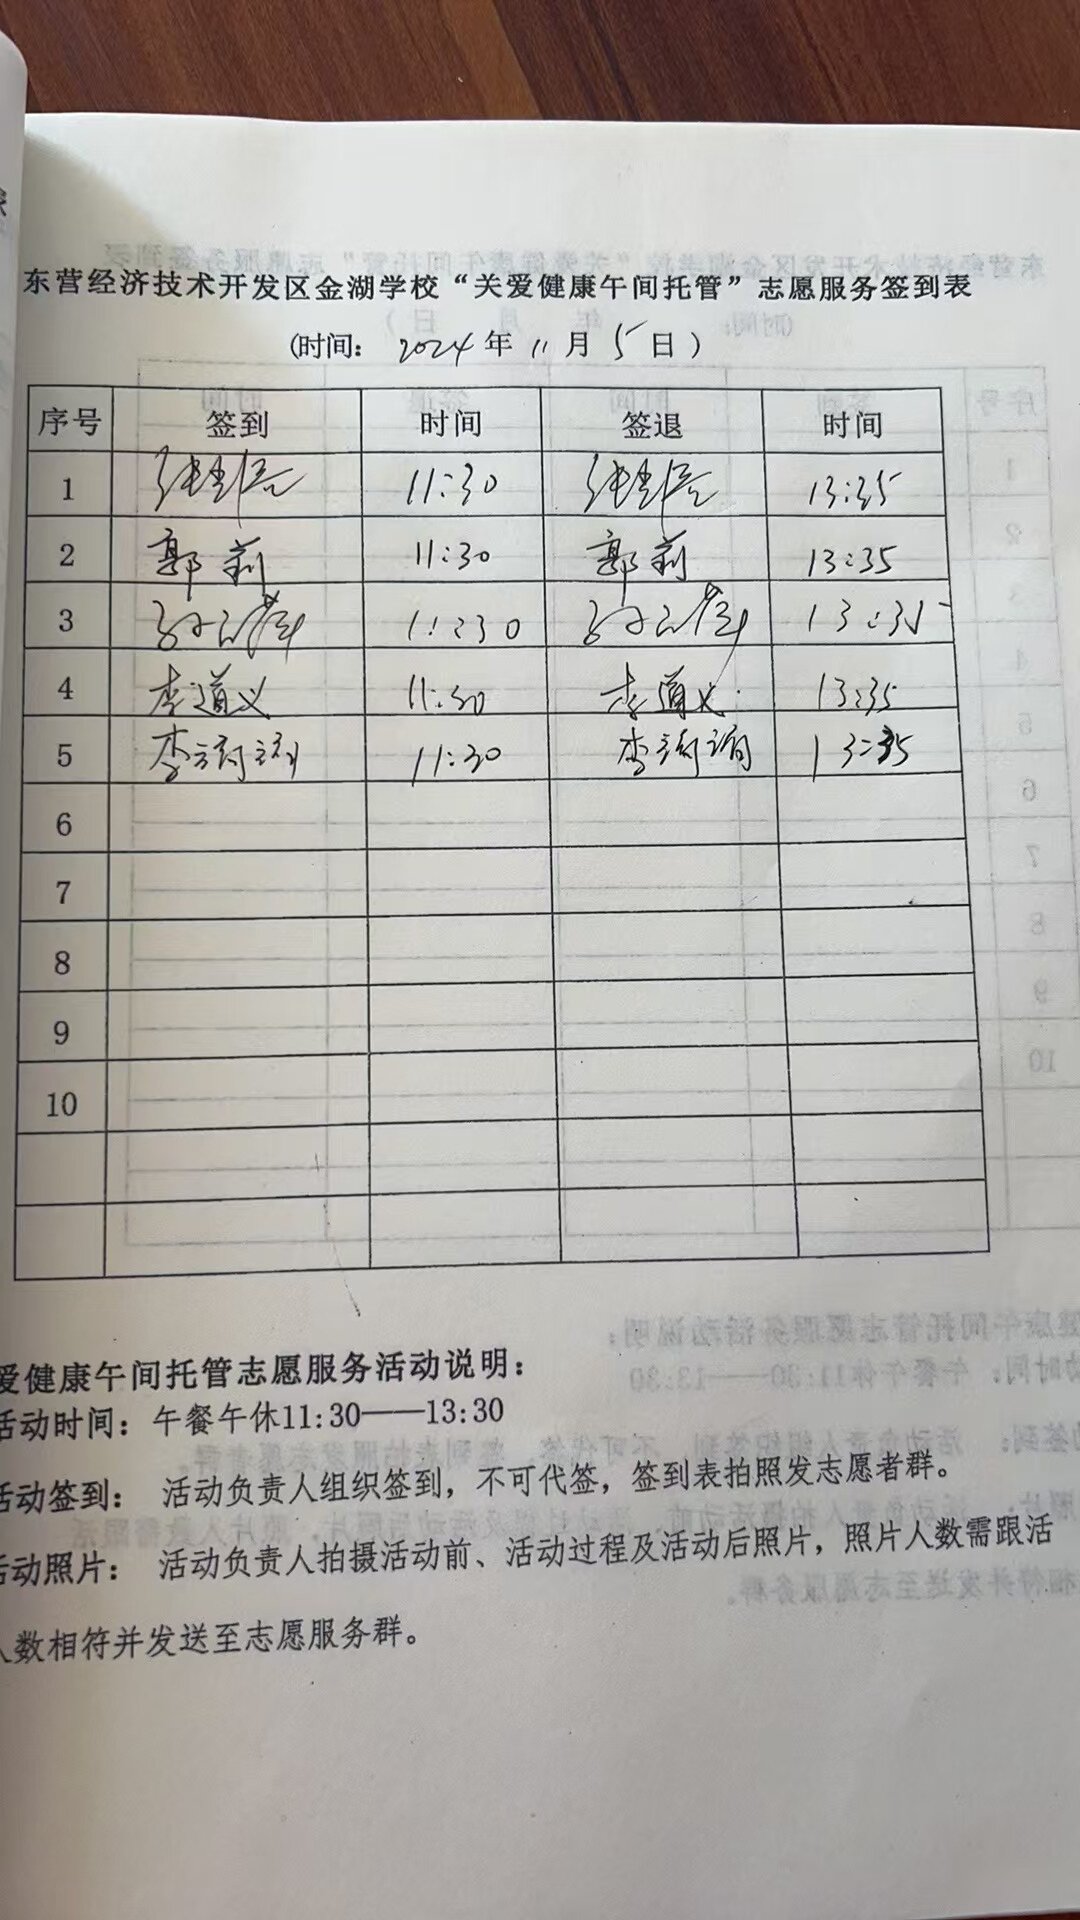 东营经济技术开发区金湖学校“关爱健康午间托管”志愿服务签到表
(时间: 2024年 11月 5日)
序号 签到 时间 签退 时间
1 11:30 13:35
2 郭莉 11:30 郭莉 13:35
3 11:30 13:35
4 李道义 11:30 李道义 13:35
5 11:30 13:35
6
7
8
9
10
爱健康午间托管志愿服务活动说明:
活动时间: 午餐午休11:30——13:30
活动签到: 活动负责人组织签到, 不可代签, 签到表拍照发志愿者群。
活动照片: 活动负责人拍摄活动前、活动过程及活动后照片, 照片人数需跟活
人数相符并发送至志愿服务群。